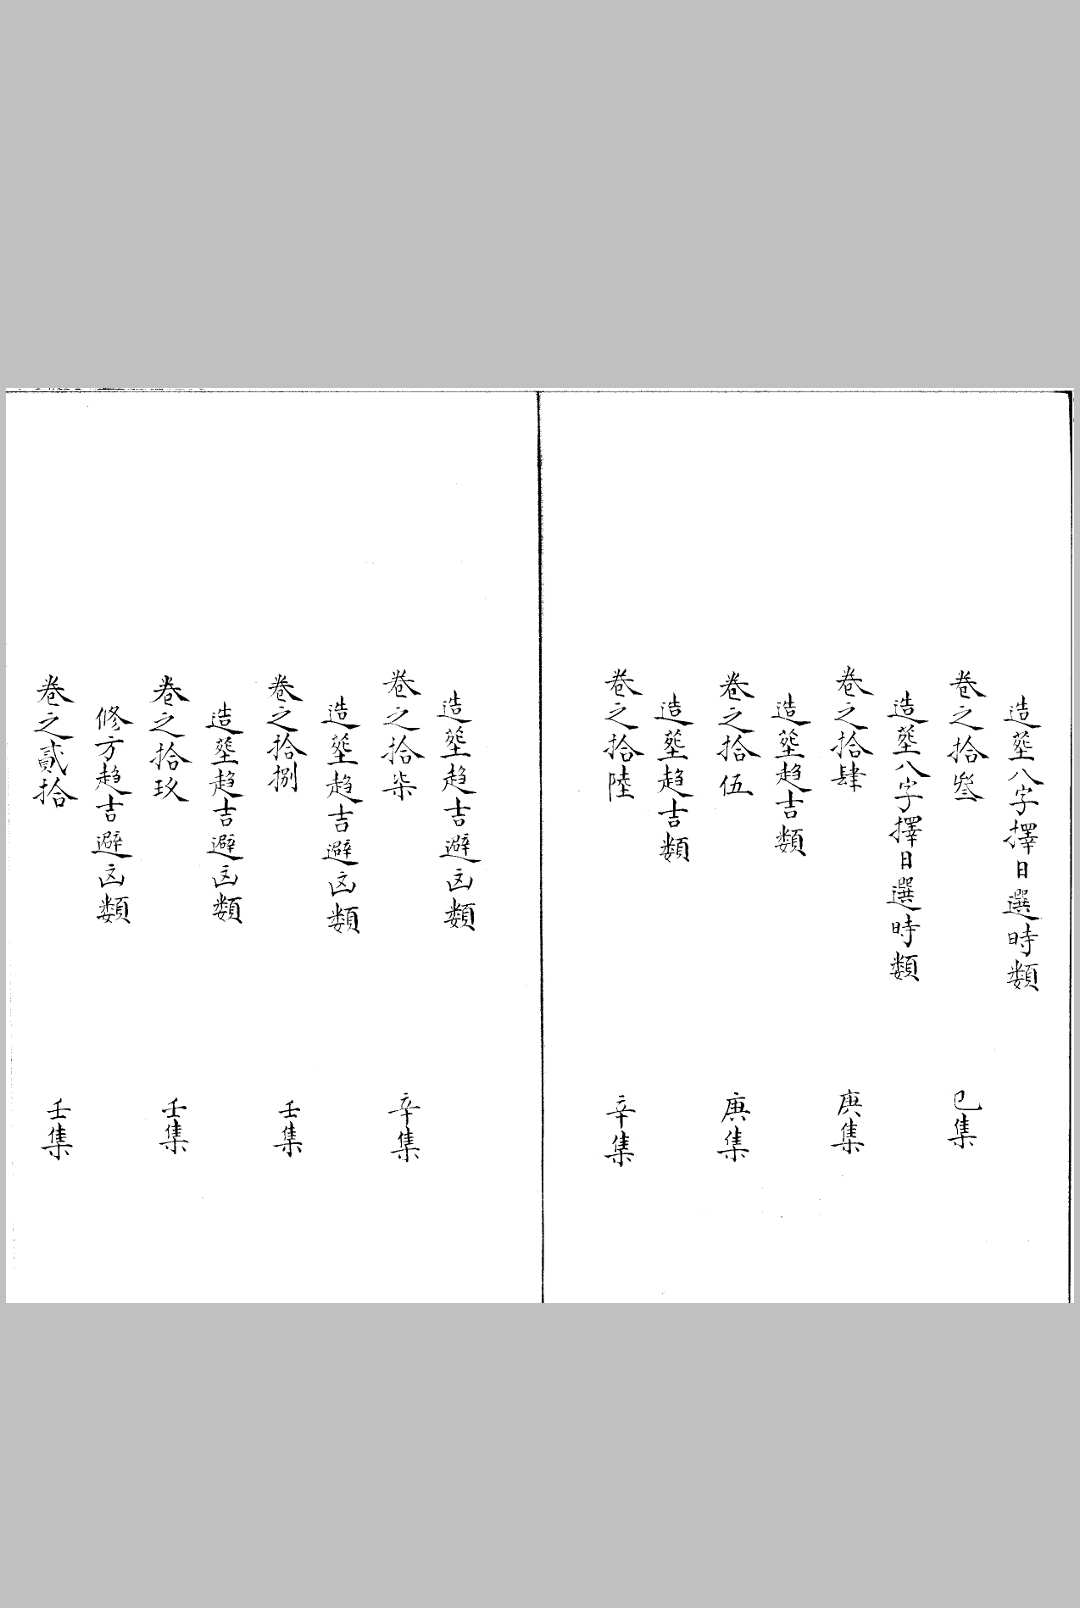 造塟八字擇日選時類
卷之拾叄 己集
造塟八字擇日選時類
卷之拾肆 庚集
造塟趋吉類
卷之拾伍 庚集
造塟趋吉類
卷之拾陸 辛集
造塟趋吉避凶類
卷之拾柒 辛集
造塟趋吉避凶類
卷之拾捌 壬集
造塟趋吉避凶類
卷之拾玖 壬集
修方趋吉避凶類
卷之貳拾 壬集